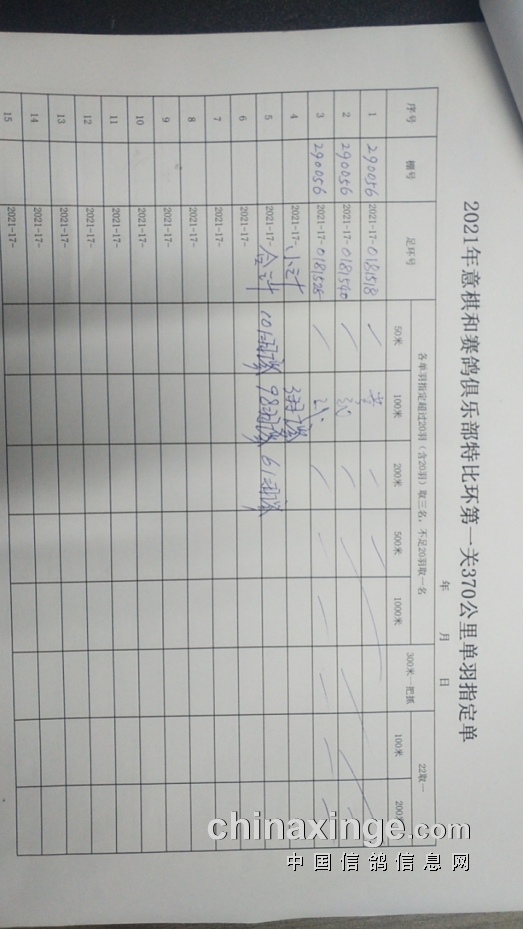 2021年意棋和赛鸽俱乐部特比环第一关370公里单羽指定单
年 月 日
序号 棚号 足环号 各单羽指定超过20羽（含20羽）取三名，不足20羽取一名 22取一
50米 100米 200米 500米 1000米 300米一把抓 100米 200
1 290056 2021-17-0181518
2 290056 2021-17-0181540
3 290056 2021-17-0181525
4 2021-17- 小计
5 2021-17- 合计 101羽次 98羽次 61羽次
6 2021-17-
7 2021-17-
8 2021-17-
9 2021-17-
10 2021-17-
11 2021-17-
12 2021-17-
13 2021-17-
14 2021-17-
15 2021-17-
chinaxinge.com
中国信鸽信息网